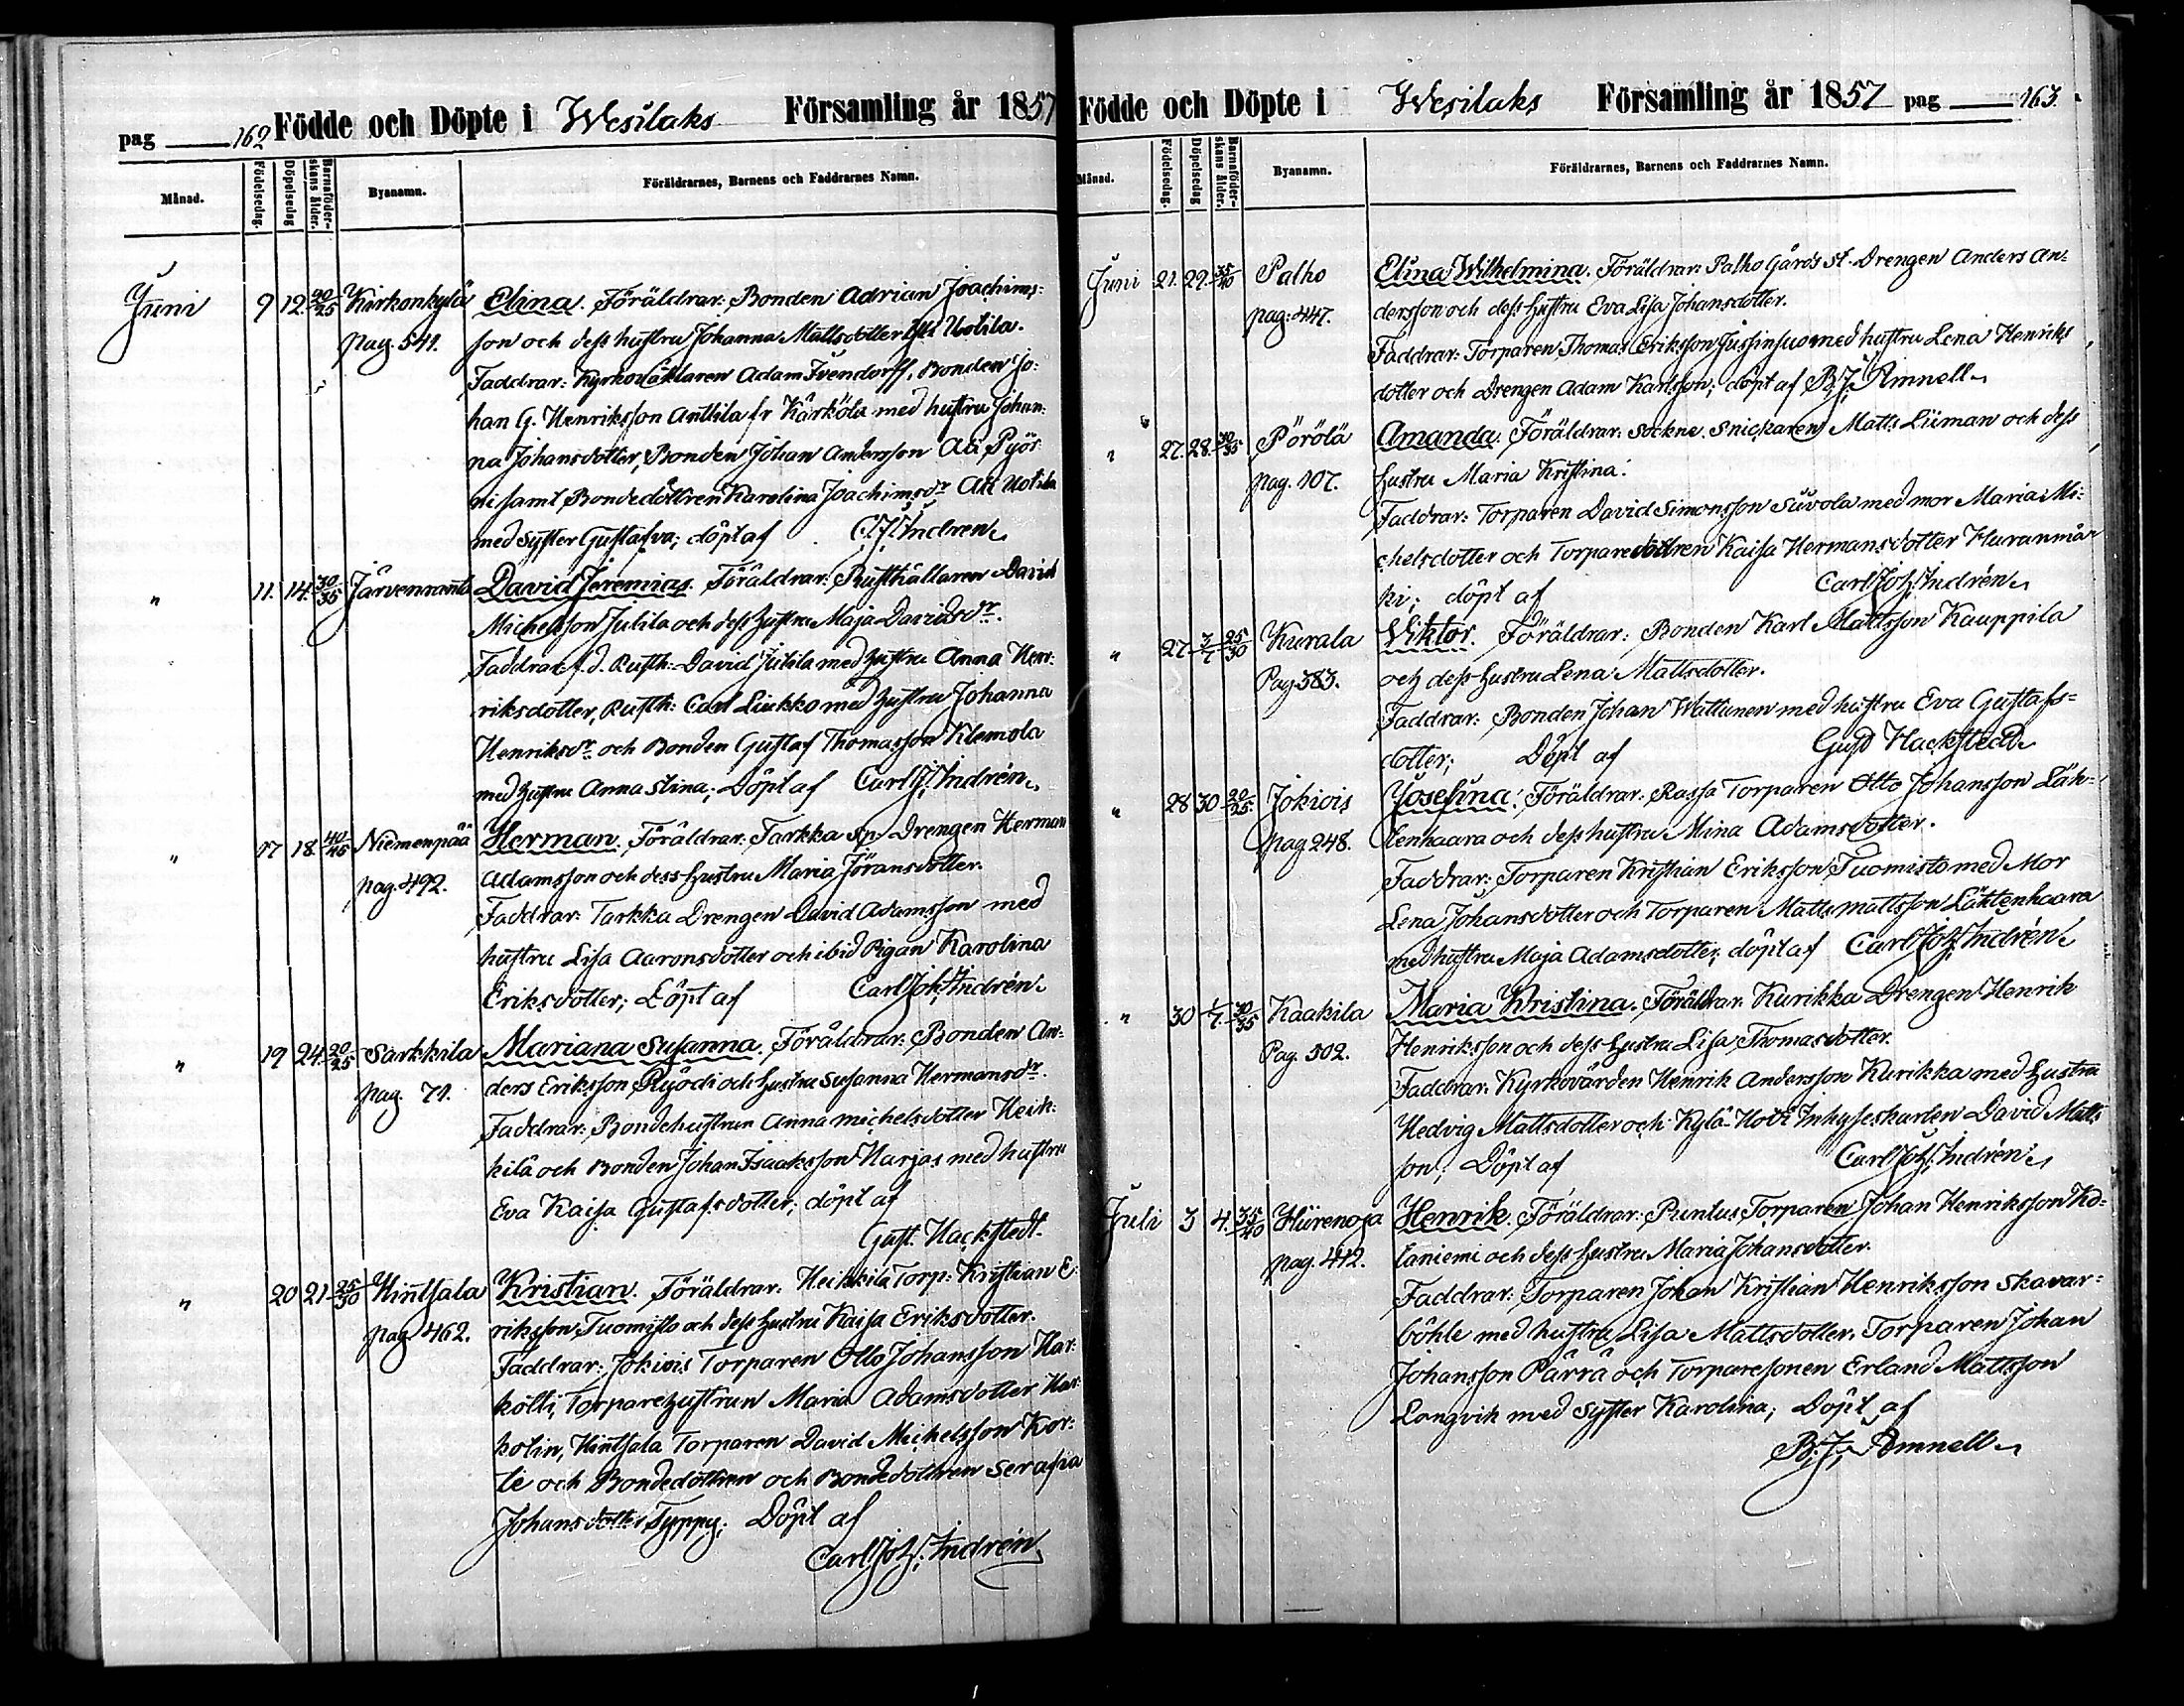 pag 162 Födde och Döpte i Wesilaks Församling år 1857
Månad. Födelsedag. Döpelsedag Barnaföderskans ålder. Byanamn. Föräldrarnes, Barnens och Faddrarnes Namn.
Juni 9 12. 40/45 Kirkonkylä Elina. Föräldrar: Bonden Adrian Joachims-
pag. 541. son och dess hustru Johanna Mattsdotter Uotila.
Faddrar: Kyrkoväktaren Adam Ivendorff, Bonden Jo-
han G. Henriksson Anttila fr Kärkölä med hustru Johan-
na Johansdotter, Bonden Johan Andersson Ali Pyör
ni samt Bondedottren Karolina Joachimsdr Ali Uotila
med syster Gustafva; döpt af C. J. Indren
" 11. 14. 30/35 Järvenranta David Jeremias. Föräldrar: Rusthållaren David
Michelsson Jutila och dess hustru Maja Davidsdr.
Faddrar: f. d. Rusth: David Jutila med hustru Anna Hen-
riksdotter, Rusth: Carl Liukko med hustru Johanna
Henriksdr och Bonden Gustaf Thomasson Klemola
med hustru Anna Stina; Döpt af Carl J. Indrén
" 17 18. 40/45 Niemenpää Herman. Föräldrar: Tarkka Sp: Drengen Herman
pag. 492. Adamsson och dess hustru Maria Jöransdotter.
Faddrar: Tarkka Drengen David Adamsson med
hustru Lisa Aaronsdotter och ibid Pigan Karolina
Eriksdotter; Döpt af Carl Joh. Indrén
" 19 24. 20/25 Sarkkila Mariana Susanna. Föräldrar: Bonden An-
pag. 71. ders Eriksson Ryödi och hustru Susanna Hermansdr.
Faddrar: Bondehustrun Anna Michelsdotter Heik-
kilä och Bonden Johan Isaaksson Harjas med hustru
Eva Kaisa Gustafsdotter; döpt af
Gust. Hackstedt.
" 20 21. 25/30 Hinthala Kristian. Föräldrar: Heikkilä Torp: Kristian E-
pag 462. riksson Tuomisto och dess hustru Kaisa Eriksdotter.
Faddrar: Jokiois Torparen Otto Johansson Har-
költi, Torparehustrun Maria Adamsdotter Har-
kolin, Hinthala Torparen David Michelsson Kor-
te och Bondedottren och Bondedottren Serafia
Johansdotter Typpy; Döpt af
Carl Joh. Indrén
Födde och Döpte i Wesilaks Församling år 1857 pag 163.
Månad. Födelsedag. Döpelsedag Barnaföderskans ålder. Byanamn. Föräldrarnes, Barnens och Faddrarnes Namn.
Juni 21. 29. 35/40 Palho Elina Wilhelmina. Föräldrar: Palho Gårds St. Drengen Anders An-
pag: 447. dersson och dess hustru Eva Lisa Johansdotter.
Faddrar: Torparen Thomas Eriksson Jussinsuo med hustru Lena Henriks
dotter och Drengen Adam Karlsson; döpt af B. J. Amnell
" 27. 28. 30/35 Pörölä Amanda. Föräldrar: Sockne Snickaren Matts Liiman och dess
pag. 107. hustru Maria Kristina.
Faddrar: Torparen David Simonsson Suvola med mor Maria Mi-
chelsdotter och Torparedottren Kaisa Hermansdotter Huranmär
ki; döpt af Carl Joh. Indrén
" 27 3/7 25/30 Kurala Viktor. Föräldrar: Bonden Karl Mattsson Kauppila
Pag. 383. och dess hustru Lena Mattsdotter.
Faddrar: Bonden Johan Wattunen med hustru Eva Gustafs-
dotter; Döpt af Gust Hackstedt
" 28 30 20/25. Jokiois Josefina. Föräldrar: Rassa Torparen Otto Johansson Läh-
pag. 248. tenhaara och dess hustru Mina Adamsdotter.
Faddrar: Torparen Kristian Eriksson Tuomisto med Mor
Lena Johansdotter och Torparen Matts Mattsson Lähtenhaara
med hustru Maja Adamsdotter; döpt af Carl Joh. Indrén
" 30 1/7. 30/35 Kaakila Maria Kristina. Föräldrar: Kurikka Drengen Henrik
Pag. 502. Henriksson och dess hustru Lisa Thomasdotter.
Faddrar: Kyrkovärden Henrik Andersson Kurikka med hustru
Hedvig Mattsdotter och Kylä-Hovi Inhyseskarlen David Matts
son; Döpt af Carl Joh. Indrén
Juli 3 4. 35/40 Hiirenoja Henrik. Föräldrar: Puntus Torparen Johan Henriksson Ko-
pag. 412. laniemi och dess hustru Maria Johansdotter.
Faddrar: Torparen Johan Kristian Henriksson Skavar-
böhle med hustru Lisa Mattsdotter, Torparen Johan
Johansson Pärrä och Torparesonen Erland Mattsson
Longvik med syster Karolina; Döpt af
B. J. Amnell